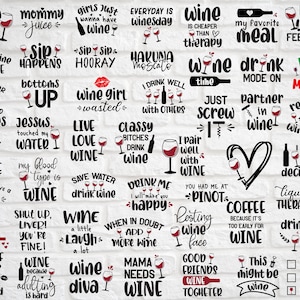 mommy
juice
girls
just
wanna have
wine
EVERYDAY IS
winesday
WINE
IS CHEAPER
than
therapy
my favorite
meal
sip
HAPPENS
Sip Sip
HOORAY
HAKUNA
MOSCATO
WINE
time
drink
MODE ON
bottoms
UP
wine girl
wasted
I DRINK WELL
with OTHERS
JUST
SCREW
IT
partner
in
wine
JESUS
touched my
WATER
LIVE
LOVE
WINE
CLASSY
BITCHES
DRINK
wine
I pair
well
with
WINE
my blood
type is
WINE
SAVE WATER
drink wine
DRINK ME
I will make you
happy
YOU HAD ME AT
"PINOT"
COFFEE
BECAUSE IT'S
TOO EARLY FOR
WINE
SHUT UP,
LIVER!
YOU'RE
FINE!
WINE
a little
Laugh
a lot
WHEN IN DOUBT
ADD
MORE WINE
Resting
wine
face
WINE
because
adulting
is hard
wine
diva
MAMA
NEEDS
WINE
GOOD
FRIENDS
WINE
TOGETHER
This
might be
wine